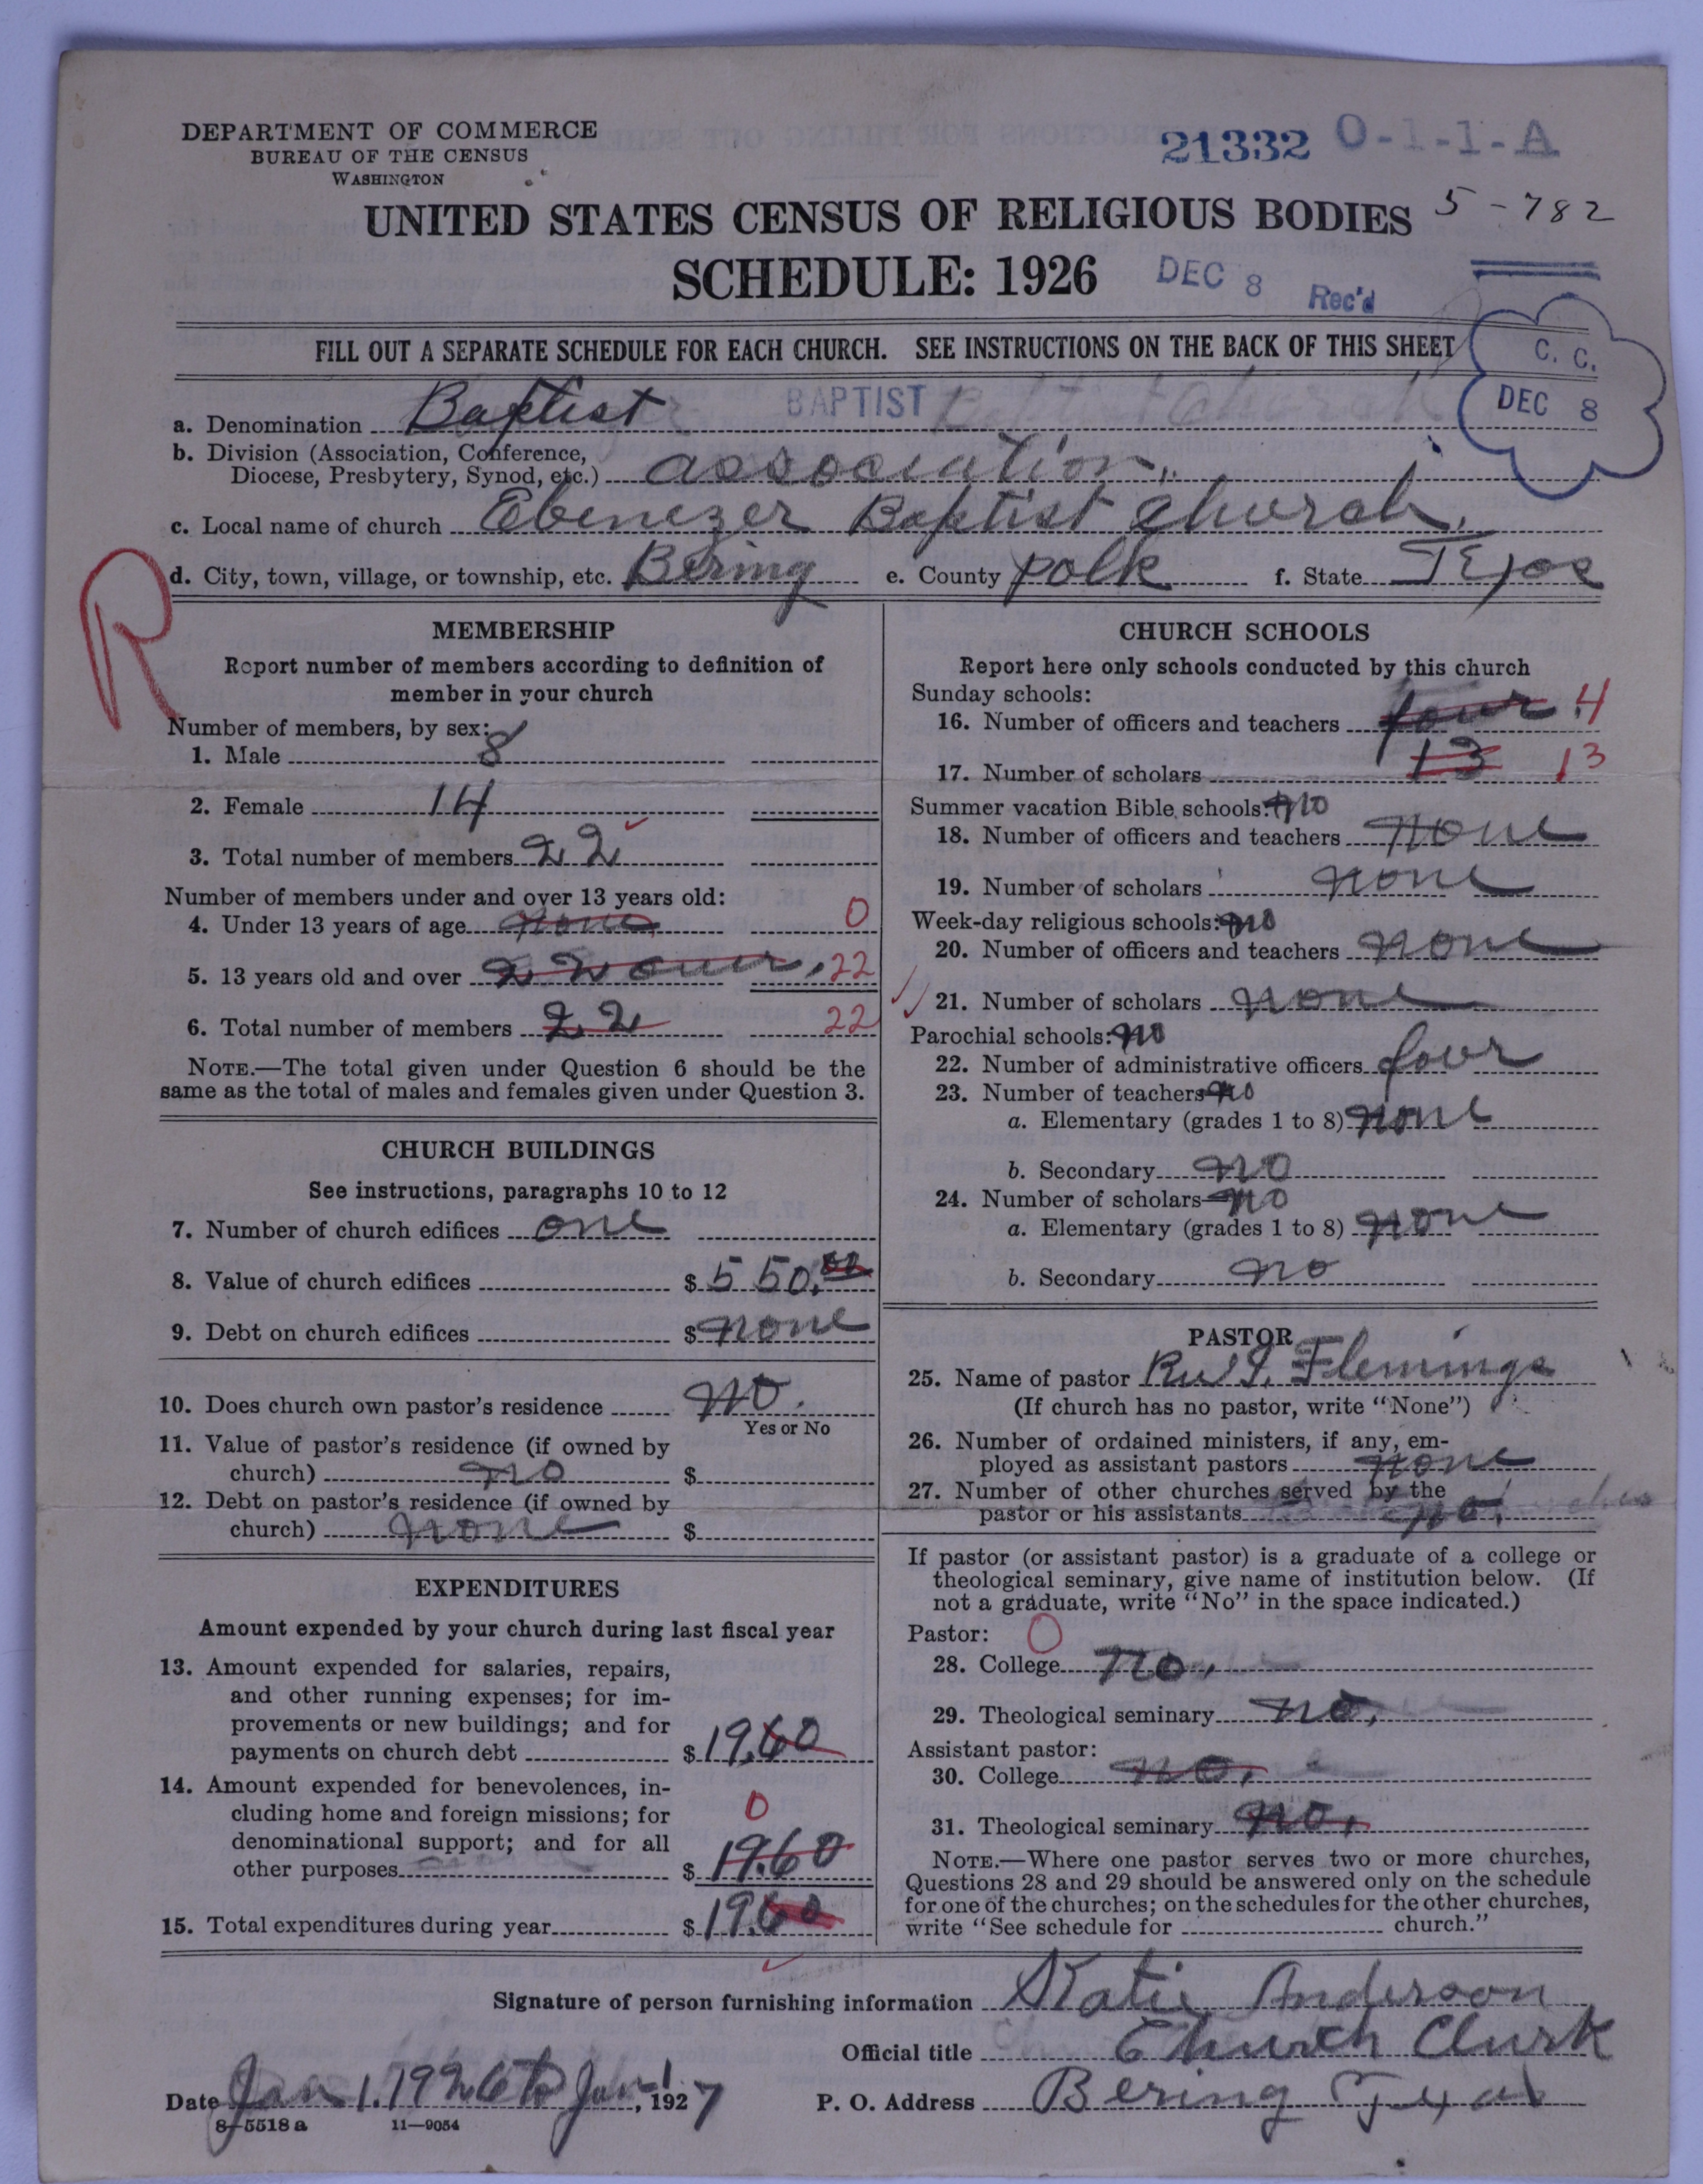 DEPARTMENT OF COMMERCE
BUREAU OF THE CENSUS
WASHINGTON
21332 O-1-1-A
UNITED STATES CENSUS OF RELIGIOUS BODIES 5-782
SCHEDULE: 1926 DEC 8 Rec'd
FILL OUT A SEPARATE SCHEDULE FOR EACH CHURCH. SEE INSTRUCTIONS ON THE BACK OF THIS SHEET
C. C.
DEC 8
a. Denomination Baptist BAPTIST
b. Division (Association, Conference,
Diocese, Presbytery, Synod, etc.) association
c. Local name of church Ebenezer Baptist Church.
d. City, town, village, or township, etc. Bering e. County polk f. State Texas
R
MEMBERSHIP
Report number of members according to definition of
member in your church
Number of members, by sex:
1. Male 8
2. Female 14
3. Total number of members 22
Number of members under and over 13 years old:
4. Under 13 years of age none 0
5. 13 years old and over 22 over, 22
6. Total number of members 22 22
NOTE.—The total given under Question 6 should be the
same as the total of males and females given under Question 3.
CHURCH BUILDINGS
See instructions, paragraphs 10 to 12
7. Number of church edifices one
8. Value of church edifices $ 550.00
9. Debt on church edifices $ none
10. Does church own pastor's residence no.
Yes or No
11. Value of pastor's residence (if owned by
church) no $
12. Debt on pastor's residence (if owned by
church) none $
EXPENDITURES
Amount expended by your church during last fiscal year
13. Amount expended for salaries, repairs,
and other running expenses; for im-
provements or new buildings; and for
payments on church debt $ 19.60
14. Amount expended for benevolences, in-
cluding home and foreign missions; for 0
denominational support; and for all
other purposes $ 19.60
15. Total expenditures during year $ 19.60
CHURCH SCHOOLS
Report here only schools conducted by this church
Sunday schools:
16. Number of officers and teachers four 4
17. Number of scholars 13 13
Summer vacation Bible schools: no
18. Number of officers and teachers none
19. Number of scholars none
Week-day religious schools: no
20. Number of officers and teachers none
21. Number of scholars none
Parochial schools: no
22. Number of administrative officers four
23. Number of teachers no
a. Elementary (grades 1 to 8) none
b. Secondary no
24. Number of scholars no
a. Elementary (grades 1 to 8) none
b. Secondary no
PASTOR
25. Name of pastor Flemings
(If church has no pastor, write "None")
26. Number of ordained ministers, if any, em-
ployed as assistant pastors none
27. Number of other churches served by the
pastor or his assistants no.
If pastor (or assistant pastor) is a graduate of a college or
theological seminary, give name of institution below. (If
not a graduate, write "No" in the space indicated.)
Pastor: 0
28. College no.
29. Theological seminary no.
Assistant pastor:
30. College no.
31. Theological seminary no.
NOTE.—Where one pastor serves two or more churches,
Questions 28 and 29 should be answered only on the schedule
for one of the churches; on the schedules for the other churches,
write "See schedule for church."
Signature of person furnishing information Katie Anderson
Official title Church Clurk
Date Jan 1. 1926 to Jan 1, 1927 P. O. Address Bering Texas
8—5518 a 11—9054